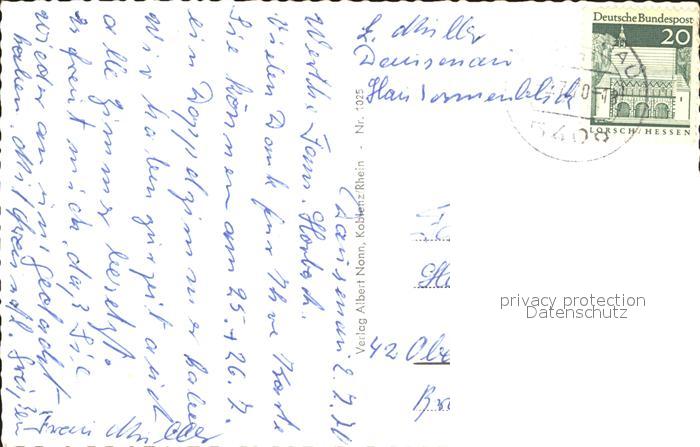 Dausenau 2.7.70
Werthe Fam. Horbach.
Vielen Dank für Ihre Karte
Sie können am 25. + 26. 7.
ein Doppelzimmer haben
wir haben zurzeit auch
alle Zimmer besetzt.
Es freut mich, daß Sie
wieder an uns gedacht
haben. Mit freundl. Grüßen
Frau Müller
Verlag Albert Nonn, Koblenz/Rhein - Nr. 1025
E. Müller
Dausenau
Haus Sonnenblick
Deutsche Bundespost
20
LORSCH/HESSEN
5408
42 Obe
privacy protection
Datenschutz